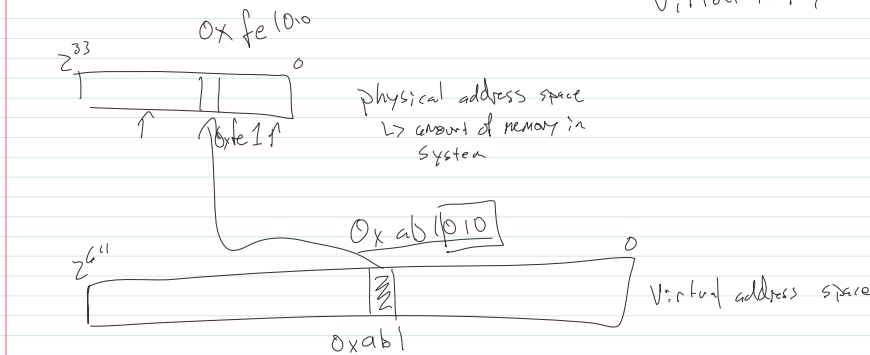 0xfe1010
2^33 0
physical address space
0xfe1
↳ amount of memory in
system
0xab1010
2^64 0
Virtual address space
0xab1